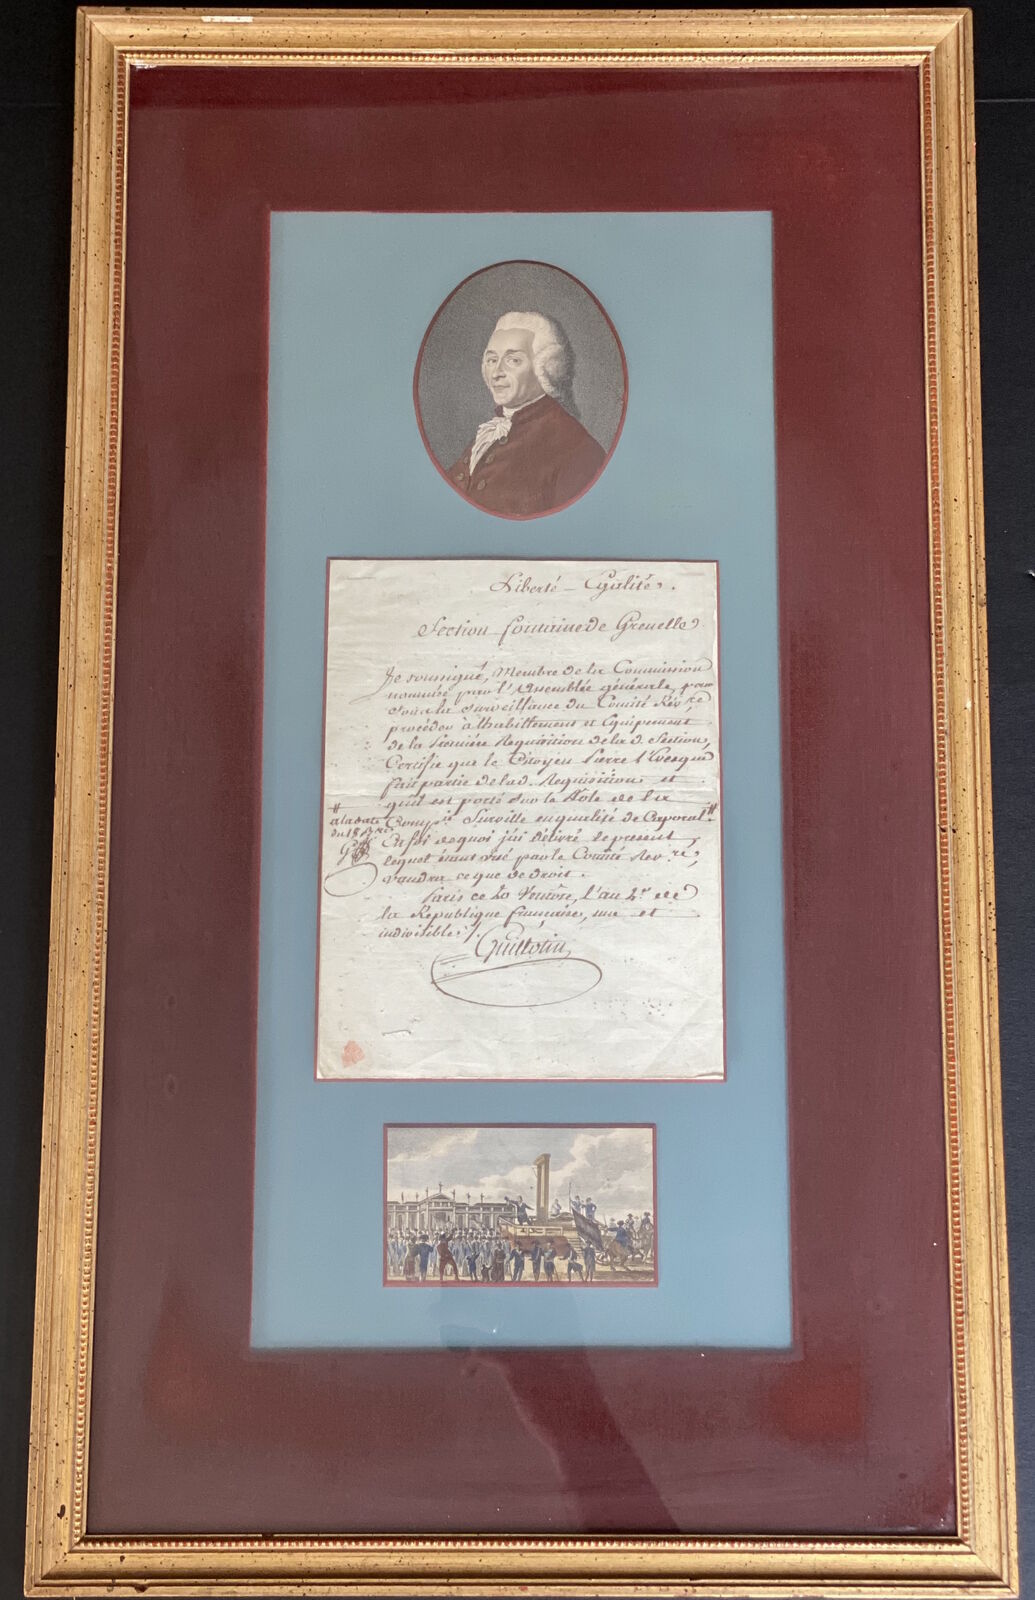 Liberté – Egalité.
Section fontaine de Grenelle
Je soussigné, Membre de la Commission
nommée par l'Assemblée générale, pour
sous la surveillance du Comité Rév.re
procéder à lhabillement et Equipement
de la premiére Requisition de la d. Section,
Certifie que le Citoyen Pierre l'Evesque
fait partie de lad. Requisition, et
qu'il est porté sur le Rôle de la
Comp.ie Surville en qualité de Caporal "
" a la date
du 18 
En foi de quoi j'ai délivré le present
lequel étant visé par le Comité Rev.re,
vaudra ce que de droit.
Paris ce 20 Ventôse, l'an 2.e de
la République française, une et
indivisible ./.
Guillotin